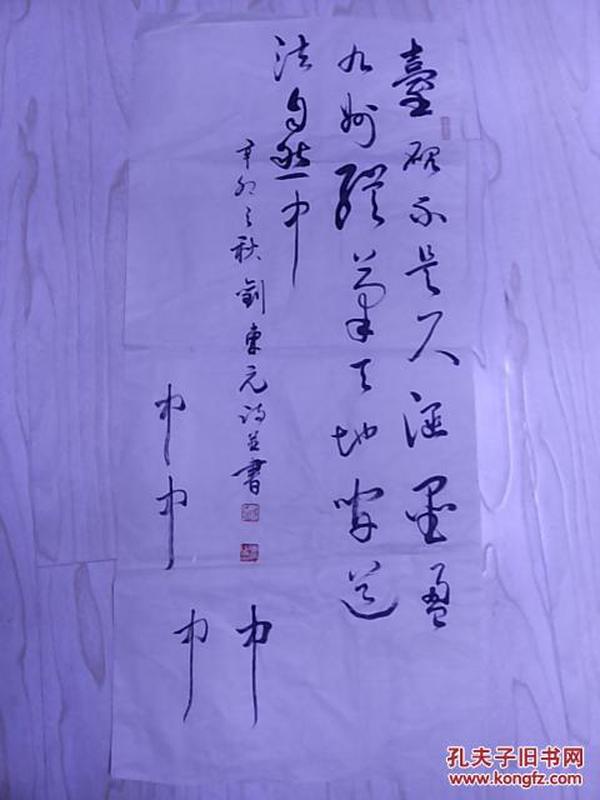 臺砚不足尺墨盈
九州筆天地道
法自然中
辛卯之秋劉東元詩並書
中
中
中
中
孔夫子旧书网
www.kongfz.com